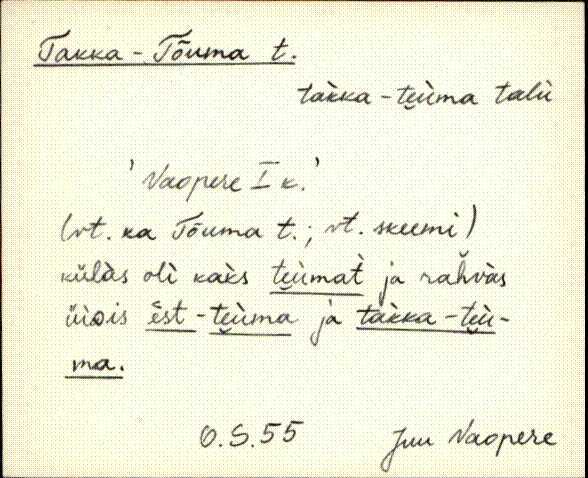 Takka-Tõuma t.
tàkka-te̮ùma talù
'Vaopere I k.'
(vt. ka Tõuma t.; vt. skeemi)
külàs olì kaks te̮ùmat̀ ja rahvàs
üìs est-te̮ùma ja tàkka-te̮ù-
ma.
O.S.55 Juu Vaopere